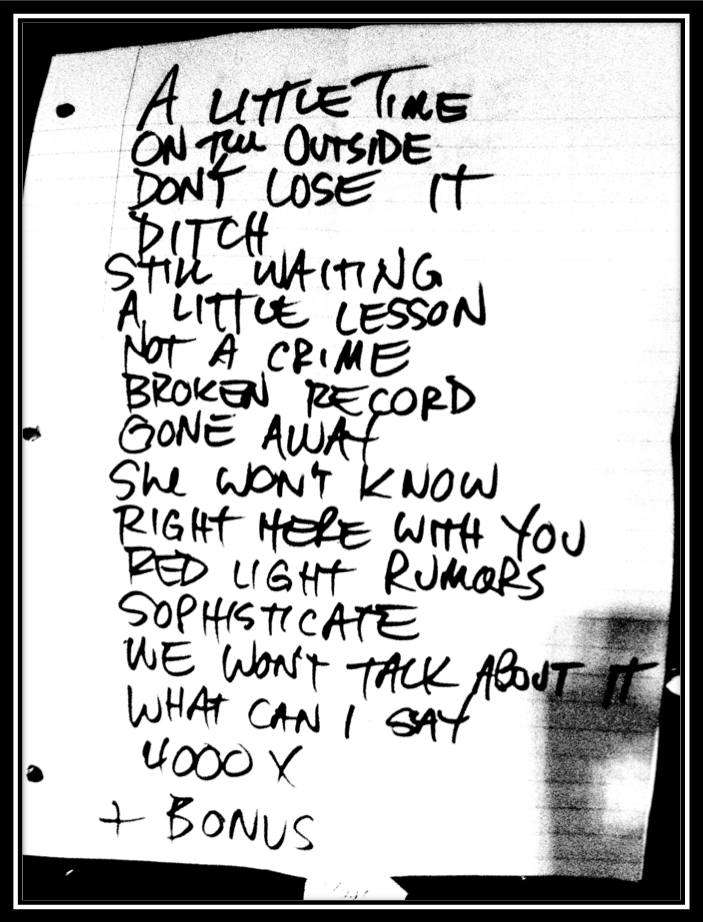 A LITTLE TIME
ON THE OUTSIDE
DON'T LOSE IT
DITCH
STILL WAITING
A LITTLE LESSON
NOT A CRIME
BROKEN RECORD
GONE AWAY
She WON'T KNOW
RIGHT HERE WITH YOU
RED LIGHT RUMORS
SOPHISTICATE
WE WON'T TALK ABOUT IT
WHAT CAN I SAY
4000 X
+ BONUS